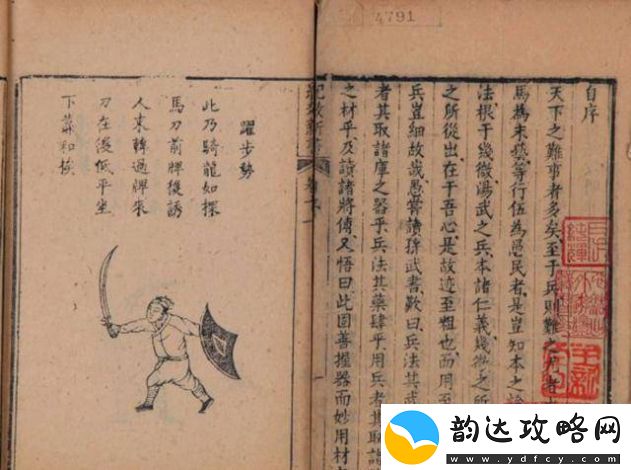 4791
自序
天下之難事者多矣至于兵則難之
馬為末藝等行伍為愚民者是豈知本之論
法根于幾微湯武之兵本諸仁義幾微之所
之所從出在于吾心是故迹至粗也而用至
兵豈細故哉愚嘗讀孫武書歎曰兵法其武
者其取諸庫之器乎兵法其藥肆乎用兵者其取諸
之材乎及讀諸將傳又悟曰此固善握器而妙用材
紀效新書
躍步勢
此乃騎龍如探
馬刀前牌後誘
人來轉過牌來
刀在後低平坐
下
韵达攻略网
www.ydfcy.com